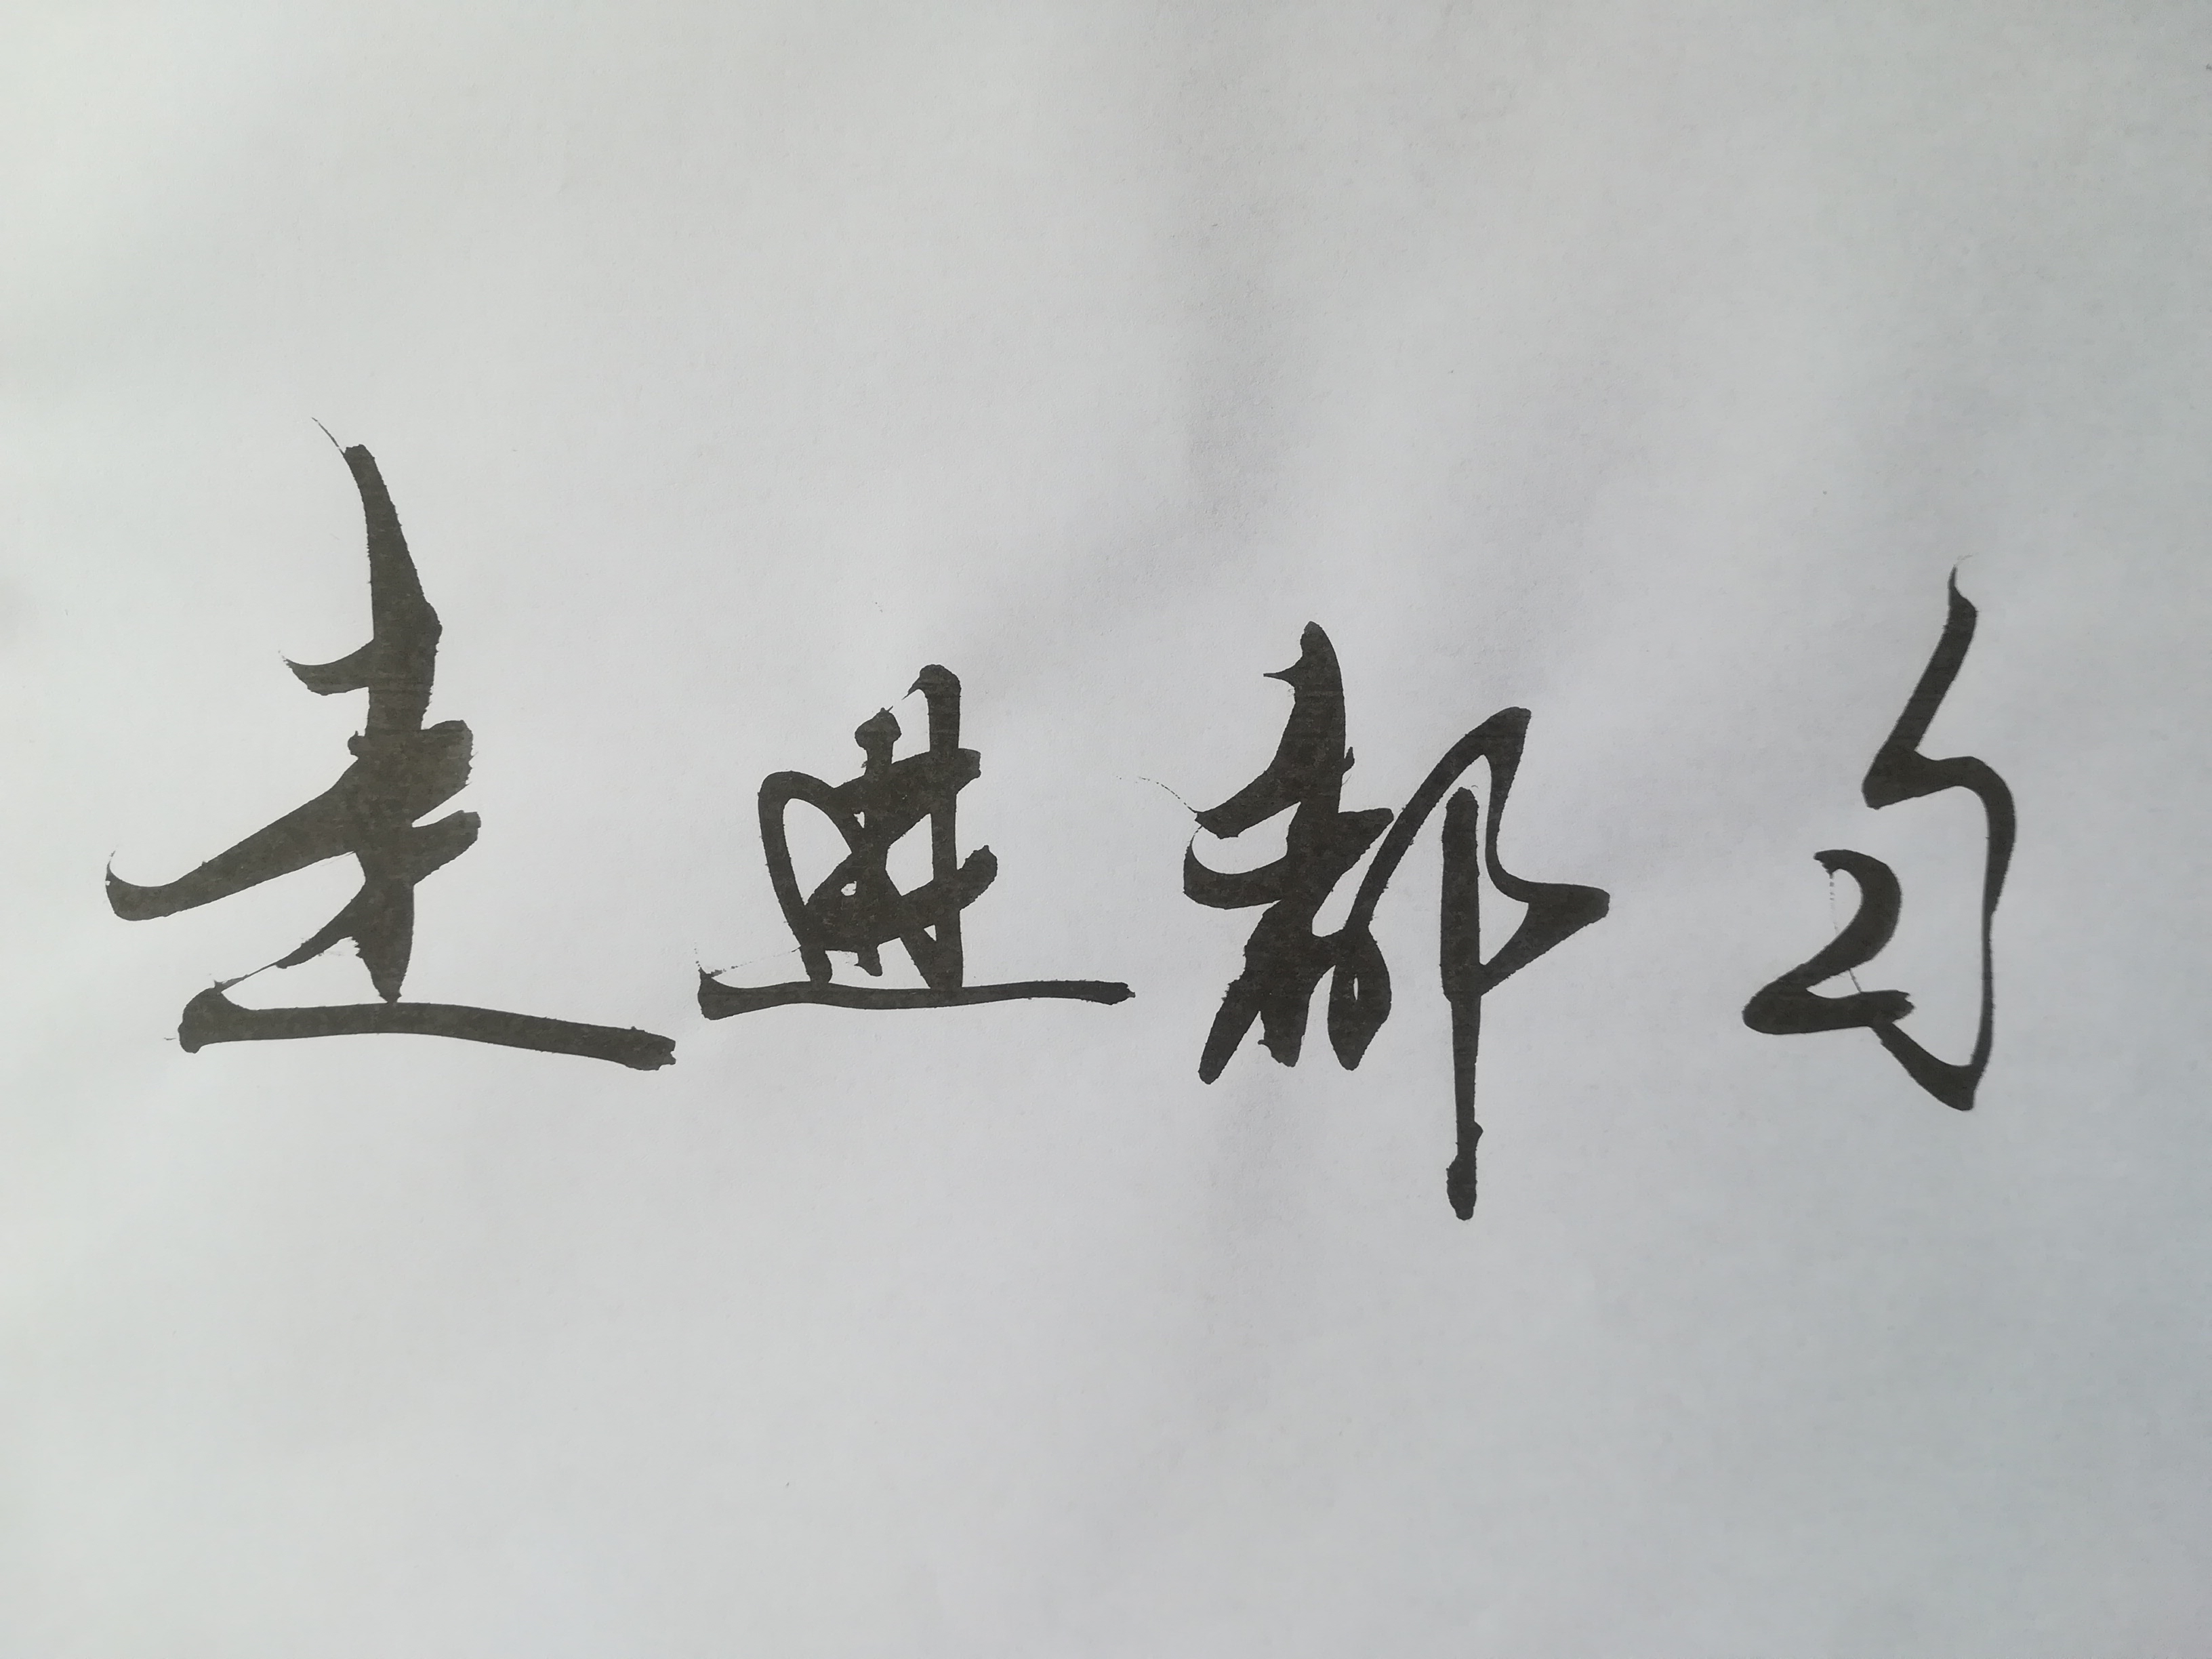 走进都匀